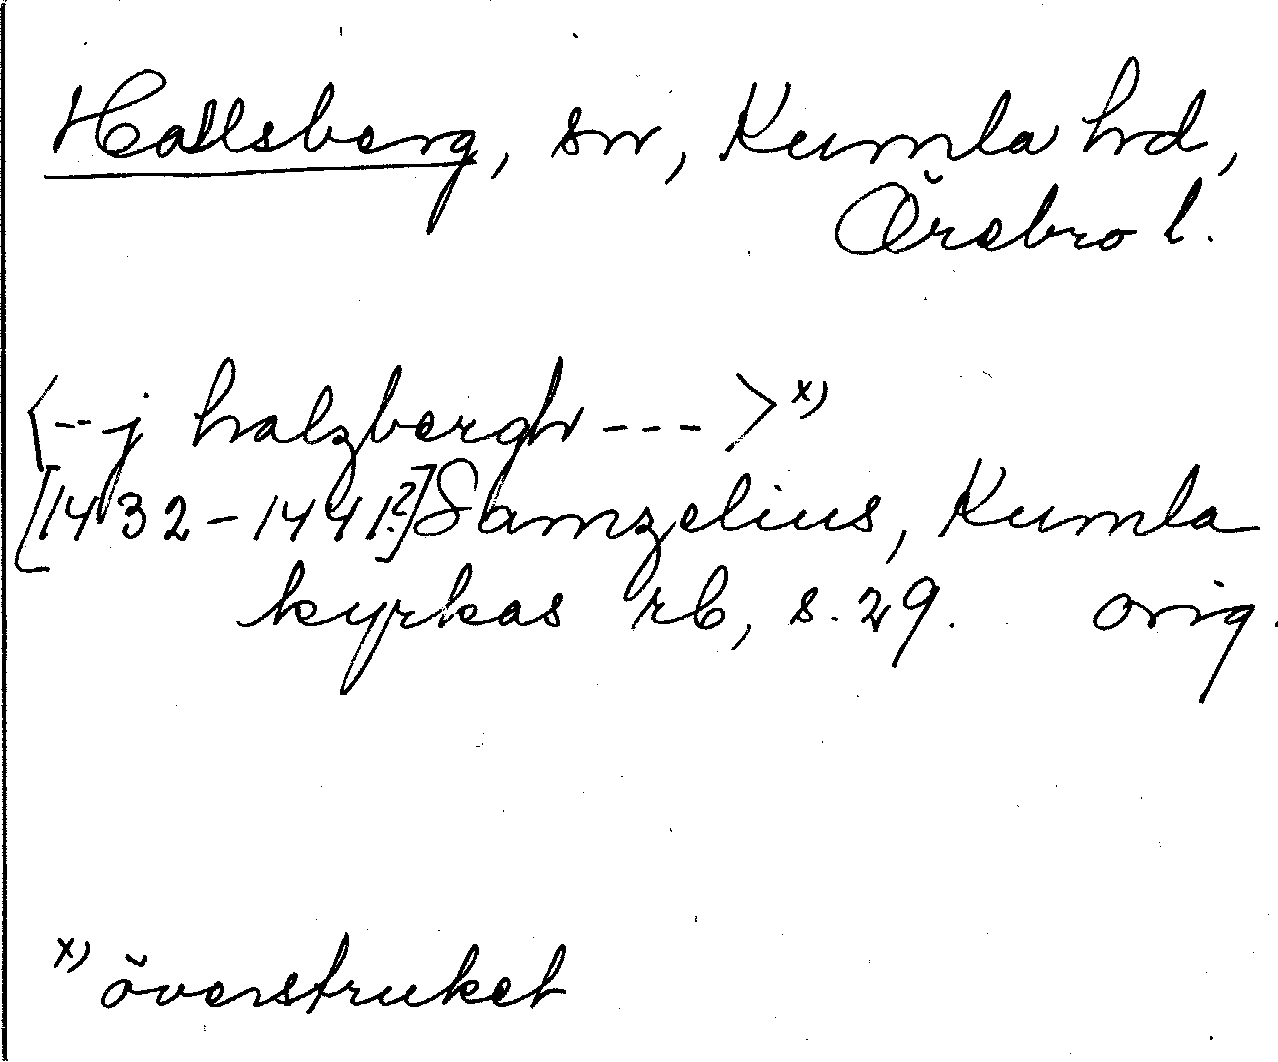 Hallsberg, sn, Kumla hd,
Örebro l.
<--j halzbergh ---> x)
[1432-1441?] Samzelius, Kumla
kyrkas rb, s. 29. orig.
x) överstruket